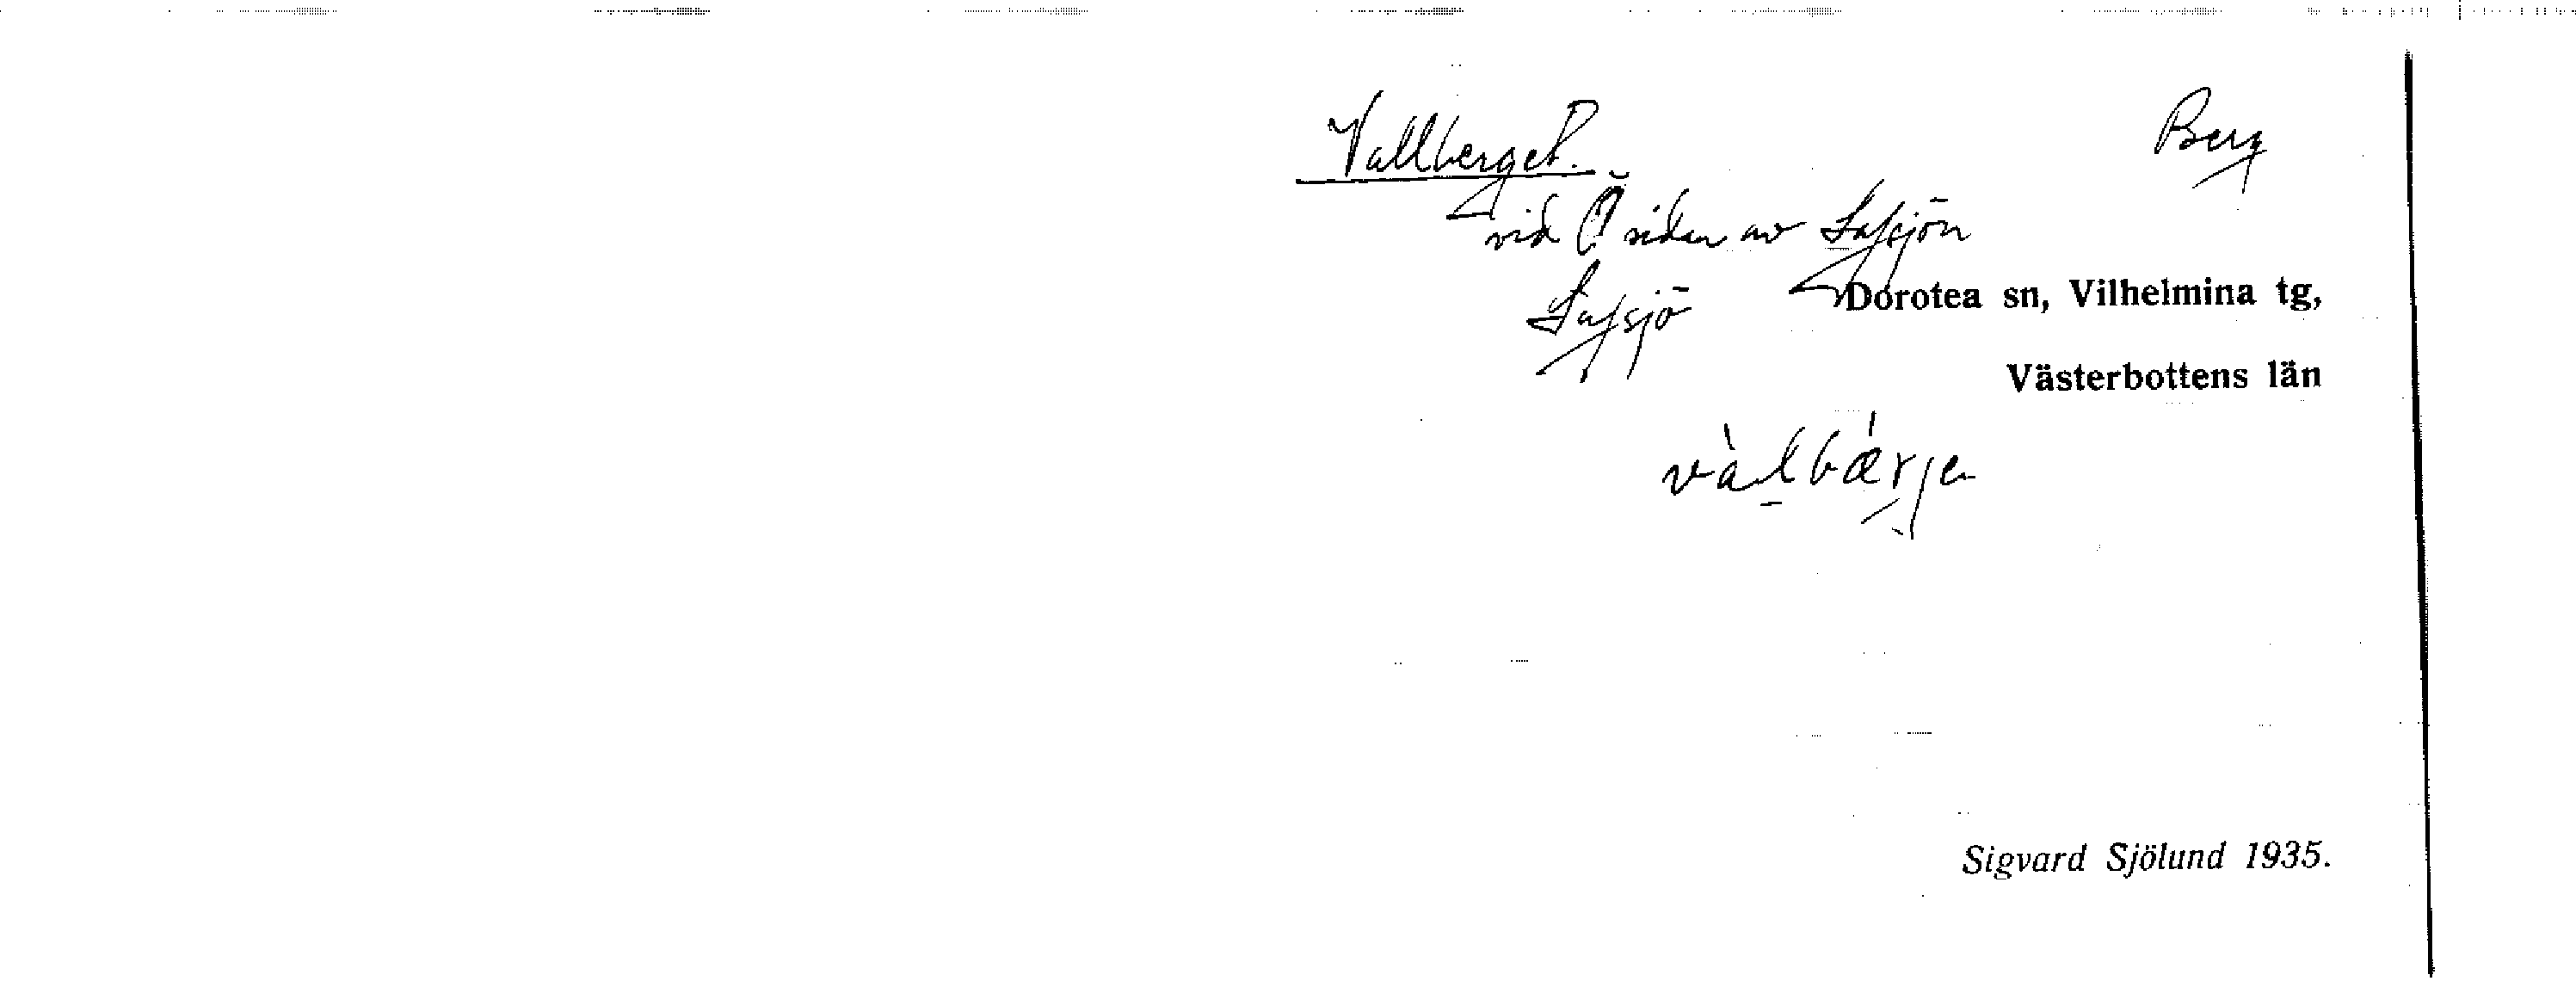 Vallberget. Berg
vid Ö sidan av Lafsjön
Lafsjö Dorotea sn, Vilhelmina tg,
Västerbottens län
vàlbærje
Sigvard Sjölund 1935.